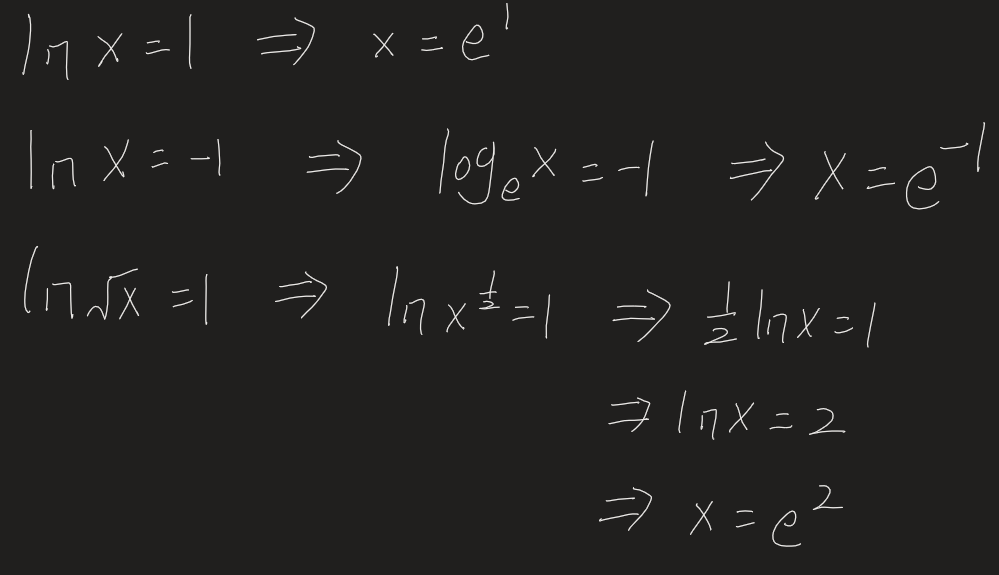 ln x = 1 ⇒ x = e¹
ln x = -1 ⇒ logₑ x = -1 ⇒ x = e⁻¹
ln √x = 1 ⇒ ln x^½ = 1 ⇒ ½ ln x = 1
⇒ ln x = 2
⇒ x = e²